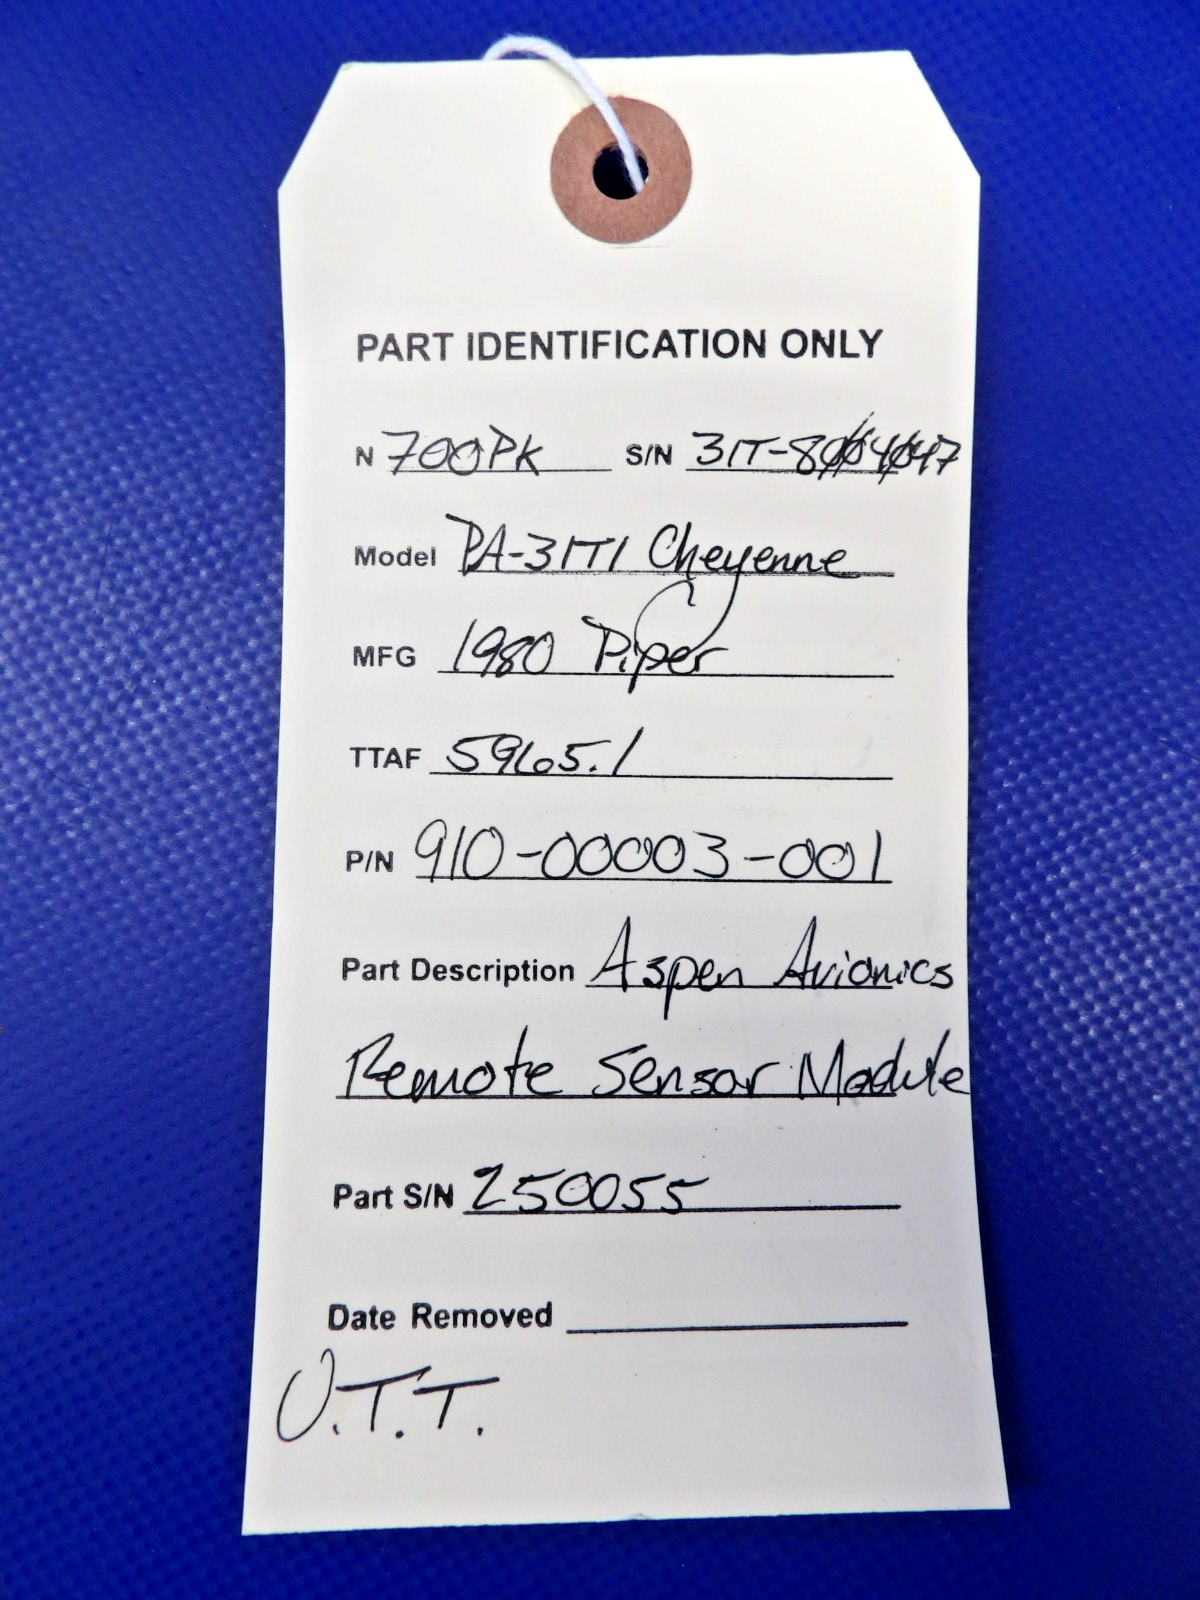 PART IDENTIFICATION ONLY
N 700PK S/N 31T-8004047
Model PA-31T1 Cheyenne
MFG 1980 Piper
TTAF 5965.1
P/N 910-00003-001
Part Description Aspen Avionics
Remote Sensor Module
Part S/N 250055
Date Removed
O.T.T.